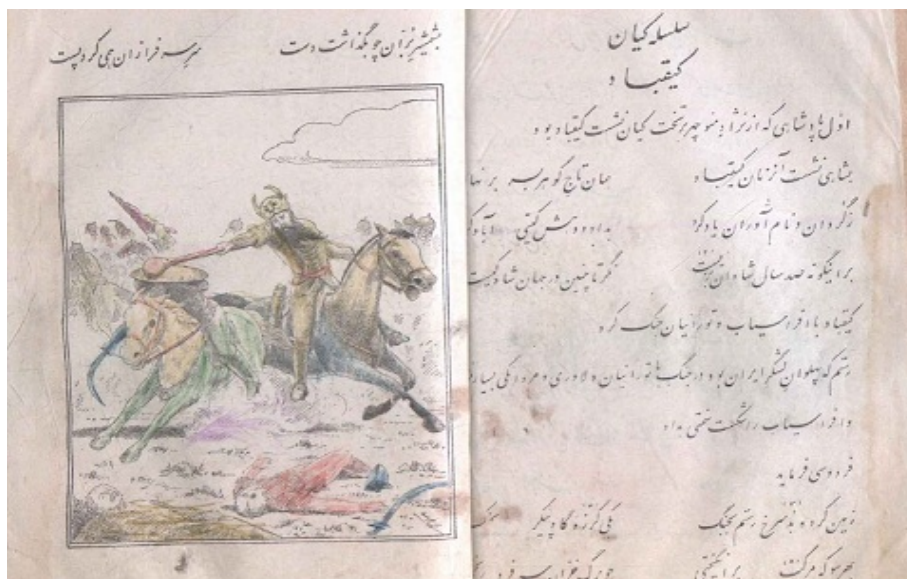 سلسله کیان
کیقباد
اول پادشاهی که از نژاد منوچهر بر تخت کیان نشست کیقباد بود
بشاهی نشست آنزمان کیقباد همان تاج گوهر بسر بر نهاد
ز گردان و نام آوران یاد کرد بداد و دهش گیتی آباد کرد
برانیگونه صد سال شادان بزیست نگر تا چنین در جهان شاه کیست
کیقباد با افراسیاب و تورانیان جنگ کرد
رستم که پهلوان لشگر ایران بود در جنگ با تورانیان دلاوری و مردانگی بسیار
و افراسیاب را شکست سختی بداد
فردوسی فرماید
زمین کرده بد سرخ رستم بجنگ یکی گرزه گاو پیکر
بهر سو که مرکب برانگیختی چو برگ خزان سر فرو
بشمشیر بران چو بگذاشت دست سر سرفرازان همی کرد پست